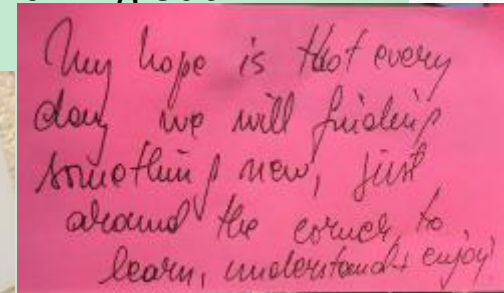 My hope is that every
day we will finding
something new, just
around the corner, to
learn, understand + enjoy!